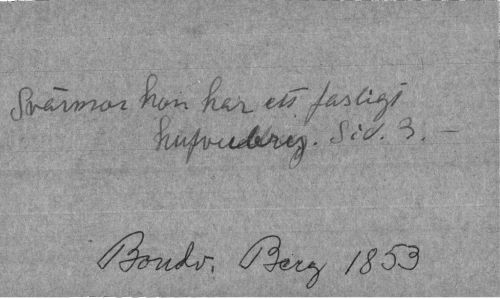 Svärmor hon har ett fasligt
hufvudbry. Sid. 3. –
Bondv. Berg 1853